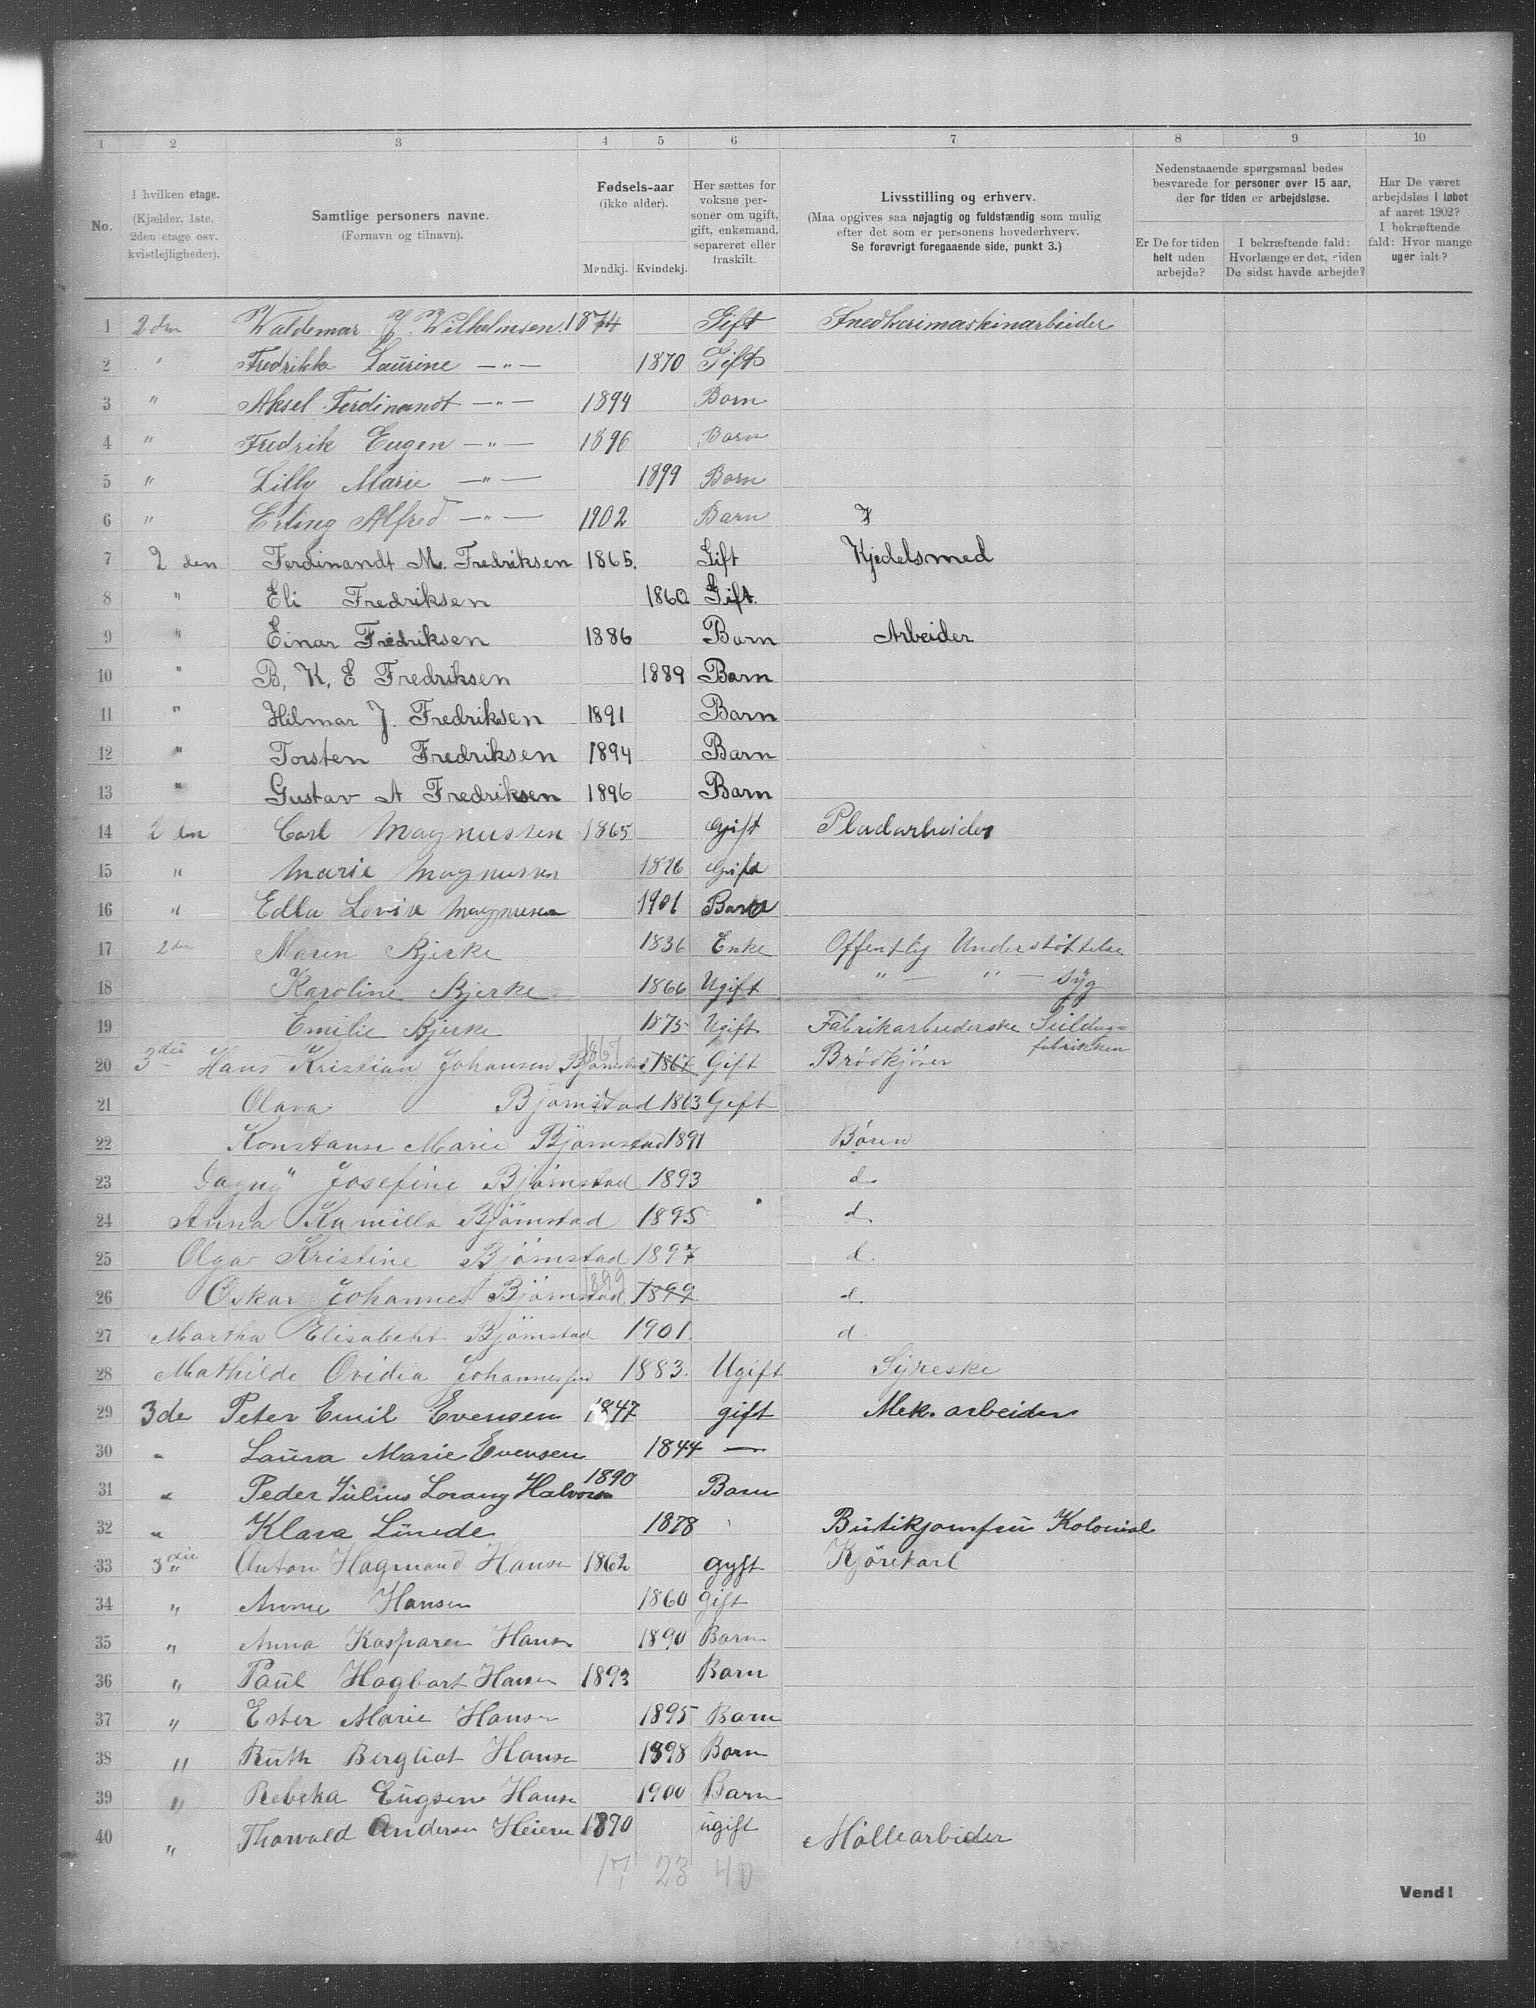 1 2 3 4 5 6 7 8 9 10
No.
I hvilken etage. (Kjælder, 1ste, 2den etage osv. kvistlejligheder).
Samtlige personers navne. (Fornavn og tilnavn).
Fødsels-aar (ikke alder). Mandkj. Kvindekj.
Her sættes for voksne personer om ugift, gift, enkemand, separeret eller fraskilt.
Livsstilling og erhverv. (Maa opgives saa nøjagtig og fuldstændig som mulig efter det som er personens hovederhverv. Se forøvrigt foregaaende side, punkt 3.)
Nedenstaaende spørgsmaal bedes besvarede for personer over 15 aar, der for tiden er arbejdsløse.
Er De for tiden helt uden arbejde?
I bekræftende fald: Hvorlænge er det, siden De sidst havde arbejde?
Har De været arbejdsløs i løbet af aaret 1902? I bekræftende fald: Hvor mange uger ialt?
1 2den Waldemar Wilhelmsen 1874 Gift Snedkerimaskinarbeider
2 " Fredrikke Laurine —"— 1870 Gift
3 " Aksel Ferdinandt —"— 1894 Barn
4 " Fredrik Eugen —"— 1896 Barn
5 " Lilly Marie —"— 1899 Barn
6 " Erling Alfred —"— 1902 Barn
7 2 den Ferdinandt M. Fredriksen 1865. Gift Kjedelsmed
8 " Eli Fredriksen 1860 Gift.
9 " Einar Fredriksen 1886 Barn Arbeider
10 " B. K. E Fredriksen 1889 Barn
11 " Hilmar J. Fredriksen 1891 Barn
12 " Torsten Fredriksen 1894 Barn
13 " Gustav A Fredriksen 1896 Barn
14 2 den Carl Magnussen 1865 Gift Pladarbeider
15 " Marie Magnusen 1876 Gift
16 " Edla Lovise Magnusen 1901 Barn
17 2den Maren Bjerke 1836 Enke Offentlig Understøttelse
18 Karoline Bjerke 1866 Ugift " — " — syg
19 Emilie Bjerke 1875 Ugift Fabrikarbederske Seildugsfabrikken
20 3die Hans Kristian Johansen Bjørnstad 1867 1867 Gift Brødkjører
21 Olava Bjørnstad 1863 Gift
22 Konstanse Marie Bjørnstad 1891 Børen
23 Dagny Josefine Bjørnstad 1893 d.
24 Anna Kamilla Bjørnstad 1895 d.
25 Olga Kristine Bjørnstad 1897 d.
26 Oskar Johannes Bjørnstad 1899 1899 d.
27 Martha Elisabeht Bjørnstad 1901. d.
28 Mathilde Ovidia Johannesen 1883. Ugift Syreske
29 3de Peter Emil Evensen 1847 gift Mek. arbeider
30 " Laura Marie Evensen 1844 —
31 " Peder Julius Lorang Halvorsen 1890 Barn
32 " Klara Linde 1878 Butikjomfru Kolonial
33 3die Anton Hagmand Hansen 1862 gyft Kjørekarl
34 " Anne Hansen 1860 Gift
35 " Anna Kasparen Hansen 1890 Barn
36 " Paul Hagbart Hansen 1893 Barn
37 " Ester Marie Hansen 1895 Barn
38 " Ruth Bergliot Hansen 1898 Barn
39 " Rebeka Eugsene Hansen 1900 Barn
40 " Thorvald Andersen Heiern 1870 ugift Møllearbider
17 23 40
Vend!